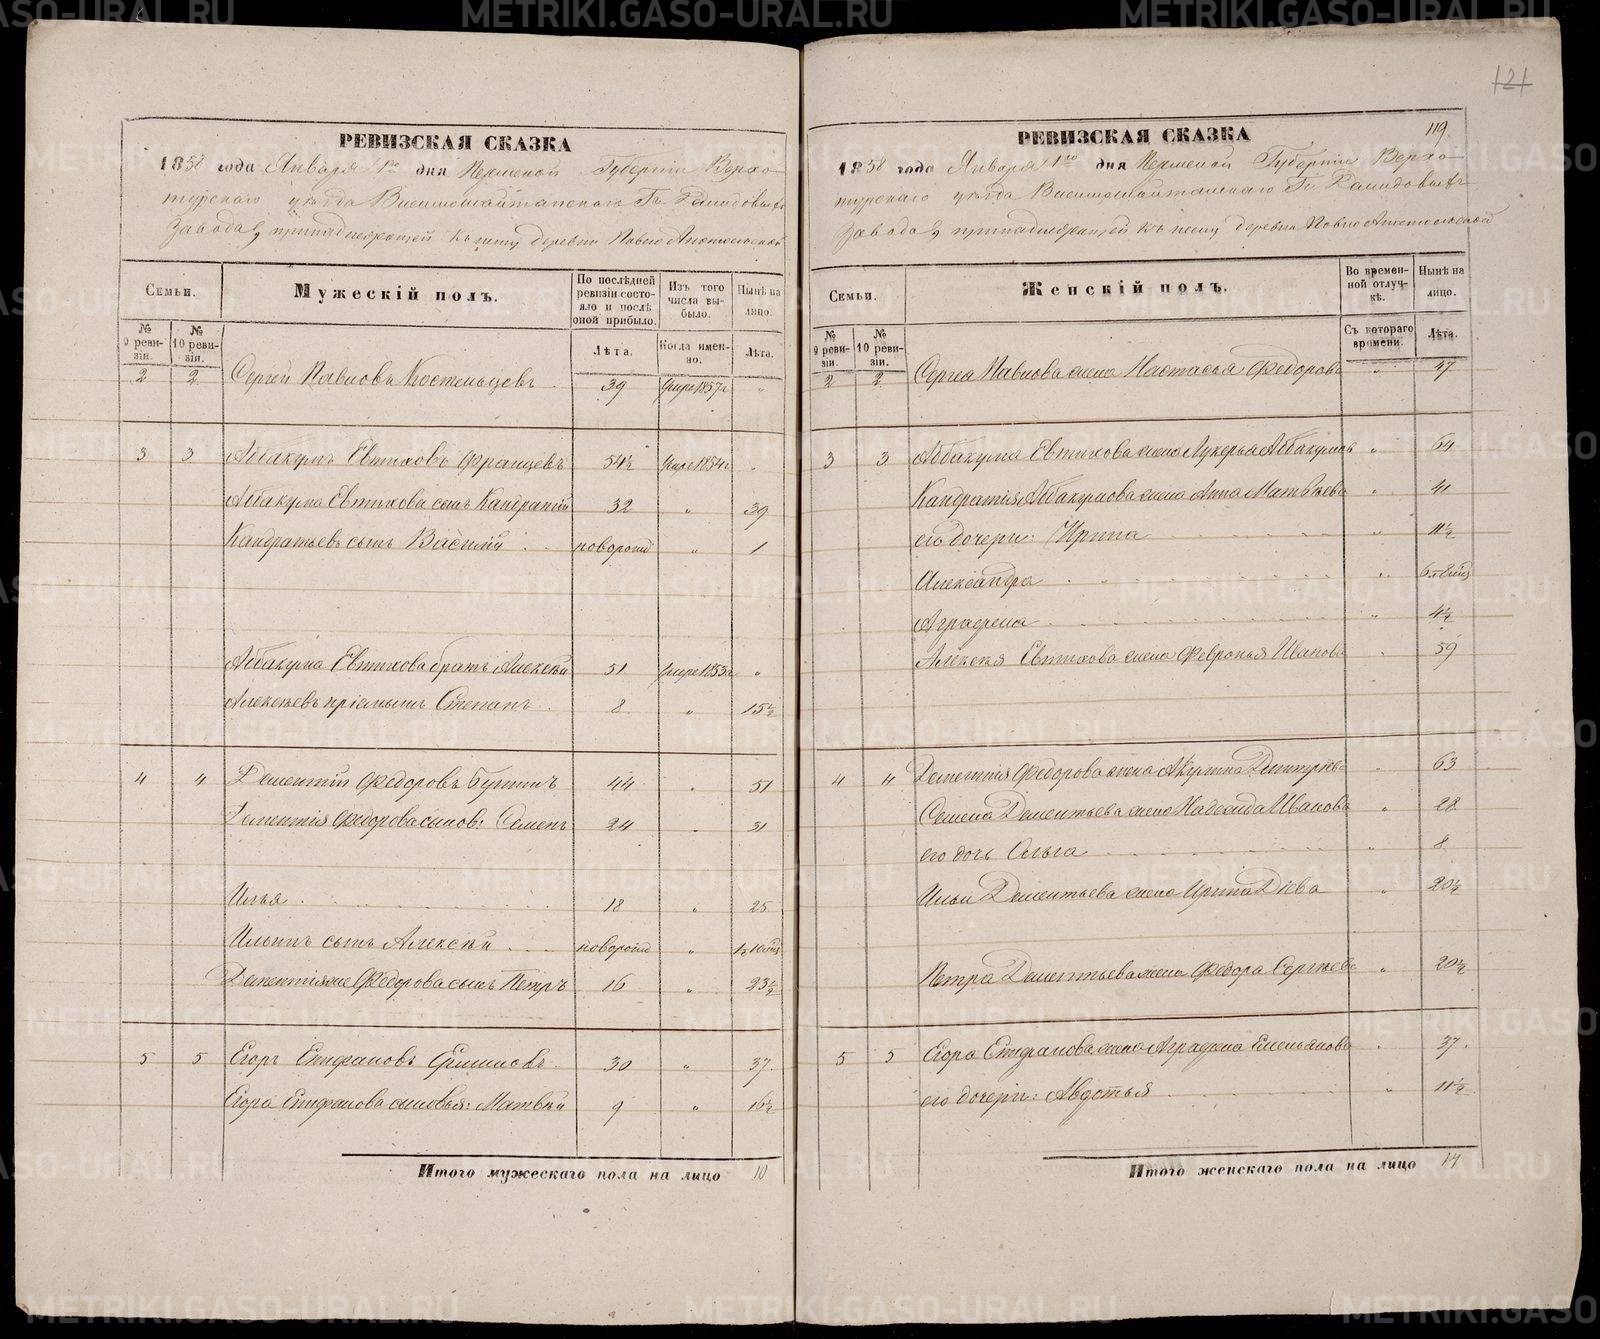 121
РЕВИЗСКАЯ СКАЗКА
1858 года Января 1го дня Пермской Губерніи Верхо-
турскаго уѣзда Висимошайтанскаго Гг. Демидовыхъ
Завода, принадлежащей къ нему деревни Павло Анатольской
Семьи.
Мужескій полъ.
По послѣдней ревизіи состояло и послѣ оной прибыло.
Изъ того числа выбыло.
Нынѣ на лицо.
№ 9 ревизіи.
№ 10 ревизіи.
Лѣта.
Когда именно.
Лѣта.
2 2 Сергей Павловъ Костельцовъ 39 Умре 1857г "
3 3 Аббакумъ Евтиховъ 54½ Умре 1854г "
Аббакума Евтихова сынъ Кандратій 32 " 39
Кандратьевъ сынъ Василій новорожд " 1
Аббакума Евтихова братъ Алексѣй 51 Умре 1853г "
Алексѣевъ пріемышъ Степанъ 8 " 15½
4 4 Дементій Федоровъ 44 " 51
Дементія Федорова сынов: Семенъ 24 " 31
Илья 18 " 25
Ильинъ сынъ Алексѣй новорожд "
Дементія же Федорова сынъ Петръ 16 " 23½
5 5 Егоръ Епифановъ 30 " 37
Егора Епифанова сыновья: Матвѣй 9 " 16½
Итого мужескаго пола на лицо 10
РЕВИЗСКАЯ СКАЗКА
119.
1858 года Января 1го дня Пермской Губерніи Верхо-
турскаго уѣзда Висимошайтанскаго Гг. Демидовыхъ
Завода, принадлежащей къ нему деревни Павло Анатольской
Семьи.
Женскій полъ.
Во временной отлучкѣ.
Нынѣ на лицо.
№ 9 ревизіи.
№ 10 ревизіи.
Съ котораго времени.
Лѣта.
2 2 Сергея Павлова жена Настасья Федорова " 47
3 3 Аббакума Евтихова жена Лукерья Аббакумова " 64
Кандратія Аббакумова жена Анна Матвѣева " 41
его дочери: Ирина " 11½
Александра " 6 л 8 мѣс
Аграфена " 4½
Алексѣя Евтихова жена Февронья Иванова " 59
4 4 Дементія Федорова жена Акулина Дмитріева " 63
Семена Дементьева жена Надежда Иванова " 28
его дочь Ольга " 8
Ильи Дементьева жена Ирина " 20½
Петра Дементьева жена Федора Сергѣева " 20½
5 5 Егора Епифанова жена Аграфена Емельянова " 37.
его дочери: Авдотья " 11½
Итого женскаго пола на лицо 14
METRIKI.GASO-URAL.RU